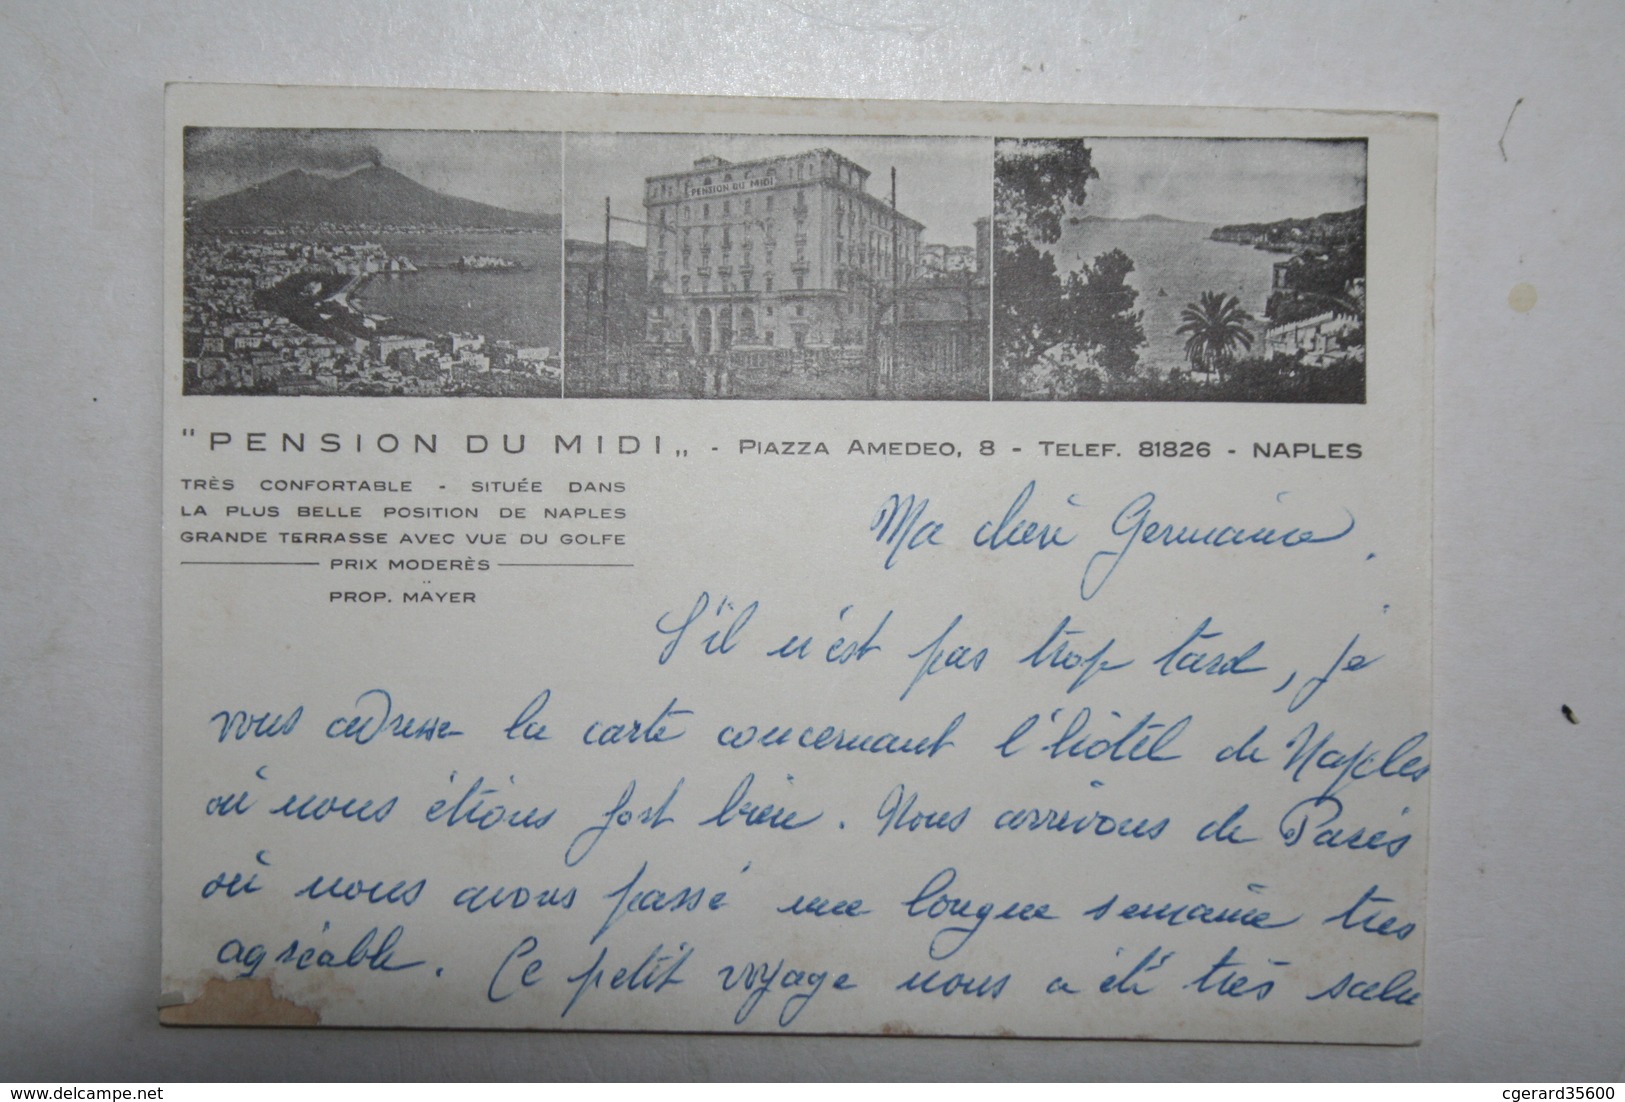 PENSION DU MIDI
"PENSION DU MIDI„ - PIAZZA AMEDEO, 8 - TELEF. 81826 - NAPLES
TRÈS CONFORTABLE - SITUÉE DANS
LA PLUS BELLE POSITION DE NAPLES
GRANDE TERRASSE AVEC VUE DU GOLFE
PRIX MODERÈS
PROP. MÄYER
Ma chère Germaine.
S'il n'est pas trop tard, je
vous adresse la carte concernant l'hôtel de Naples
où nous étions fort bien. Nous arrivons de Paris
où nous avons passé une longue semaine très
agréable. Ce petit voyage nous a été très salu
cgerard35600